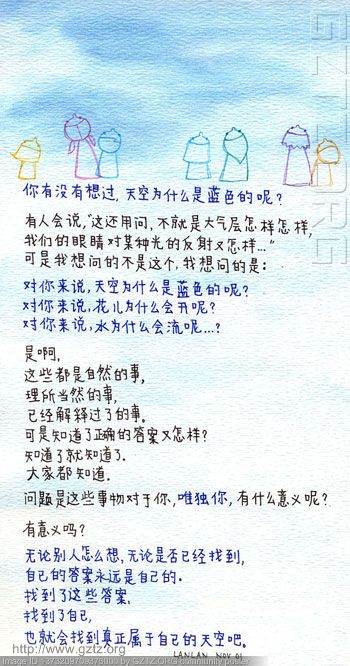 GZTZ.ORG
你有没有想过,天空为什么是蓝色的呢?
有人会说,"这还用问,不就是大气层怎样怎样,
我们的眼睛对某种光的反射又怎样..."
可是我想问的不是这个,我想问的是:
对你来说,天空为什么是蓝色的呢?
对你来说,花儿为什么会开呢?
对你来说,水为什么会流呢...?
是啊,
这些都是自然的事,
理所当然的事,
已经解释过了的事.
可是知道了正确的答案又怎样?
知道了就知道了.
大家都知道.
问题是这些事物对于你,唯独你,有什么意义呢?
有意义吗?
无论别人怎么想,无论是否已经找到,
自己的答案永远是自己的.
找到了这些答案,
找到了自己,
也就会找到真正属于自己的天空吧.
http://www.gztz.org
LANLAN NOV.01